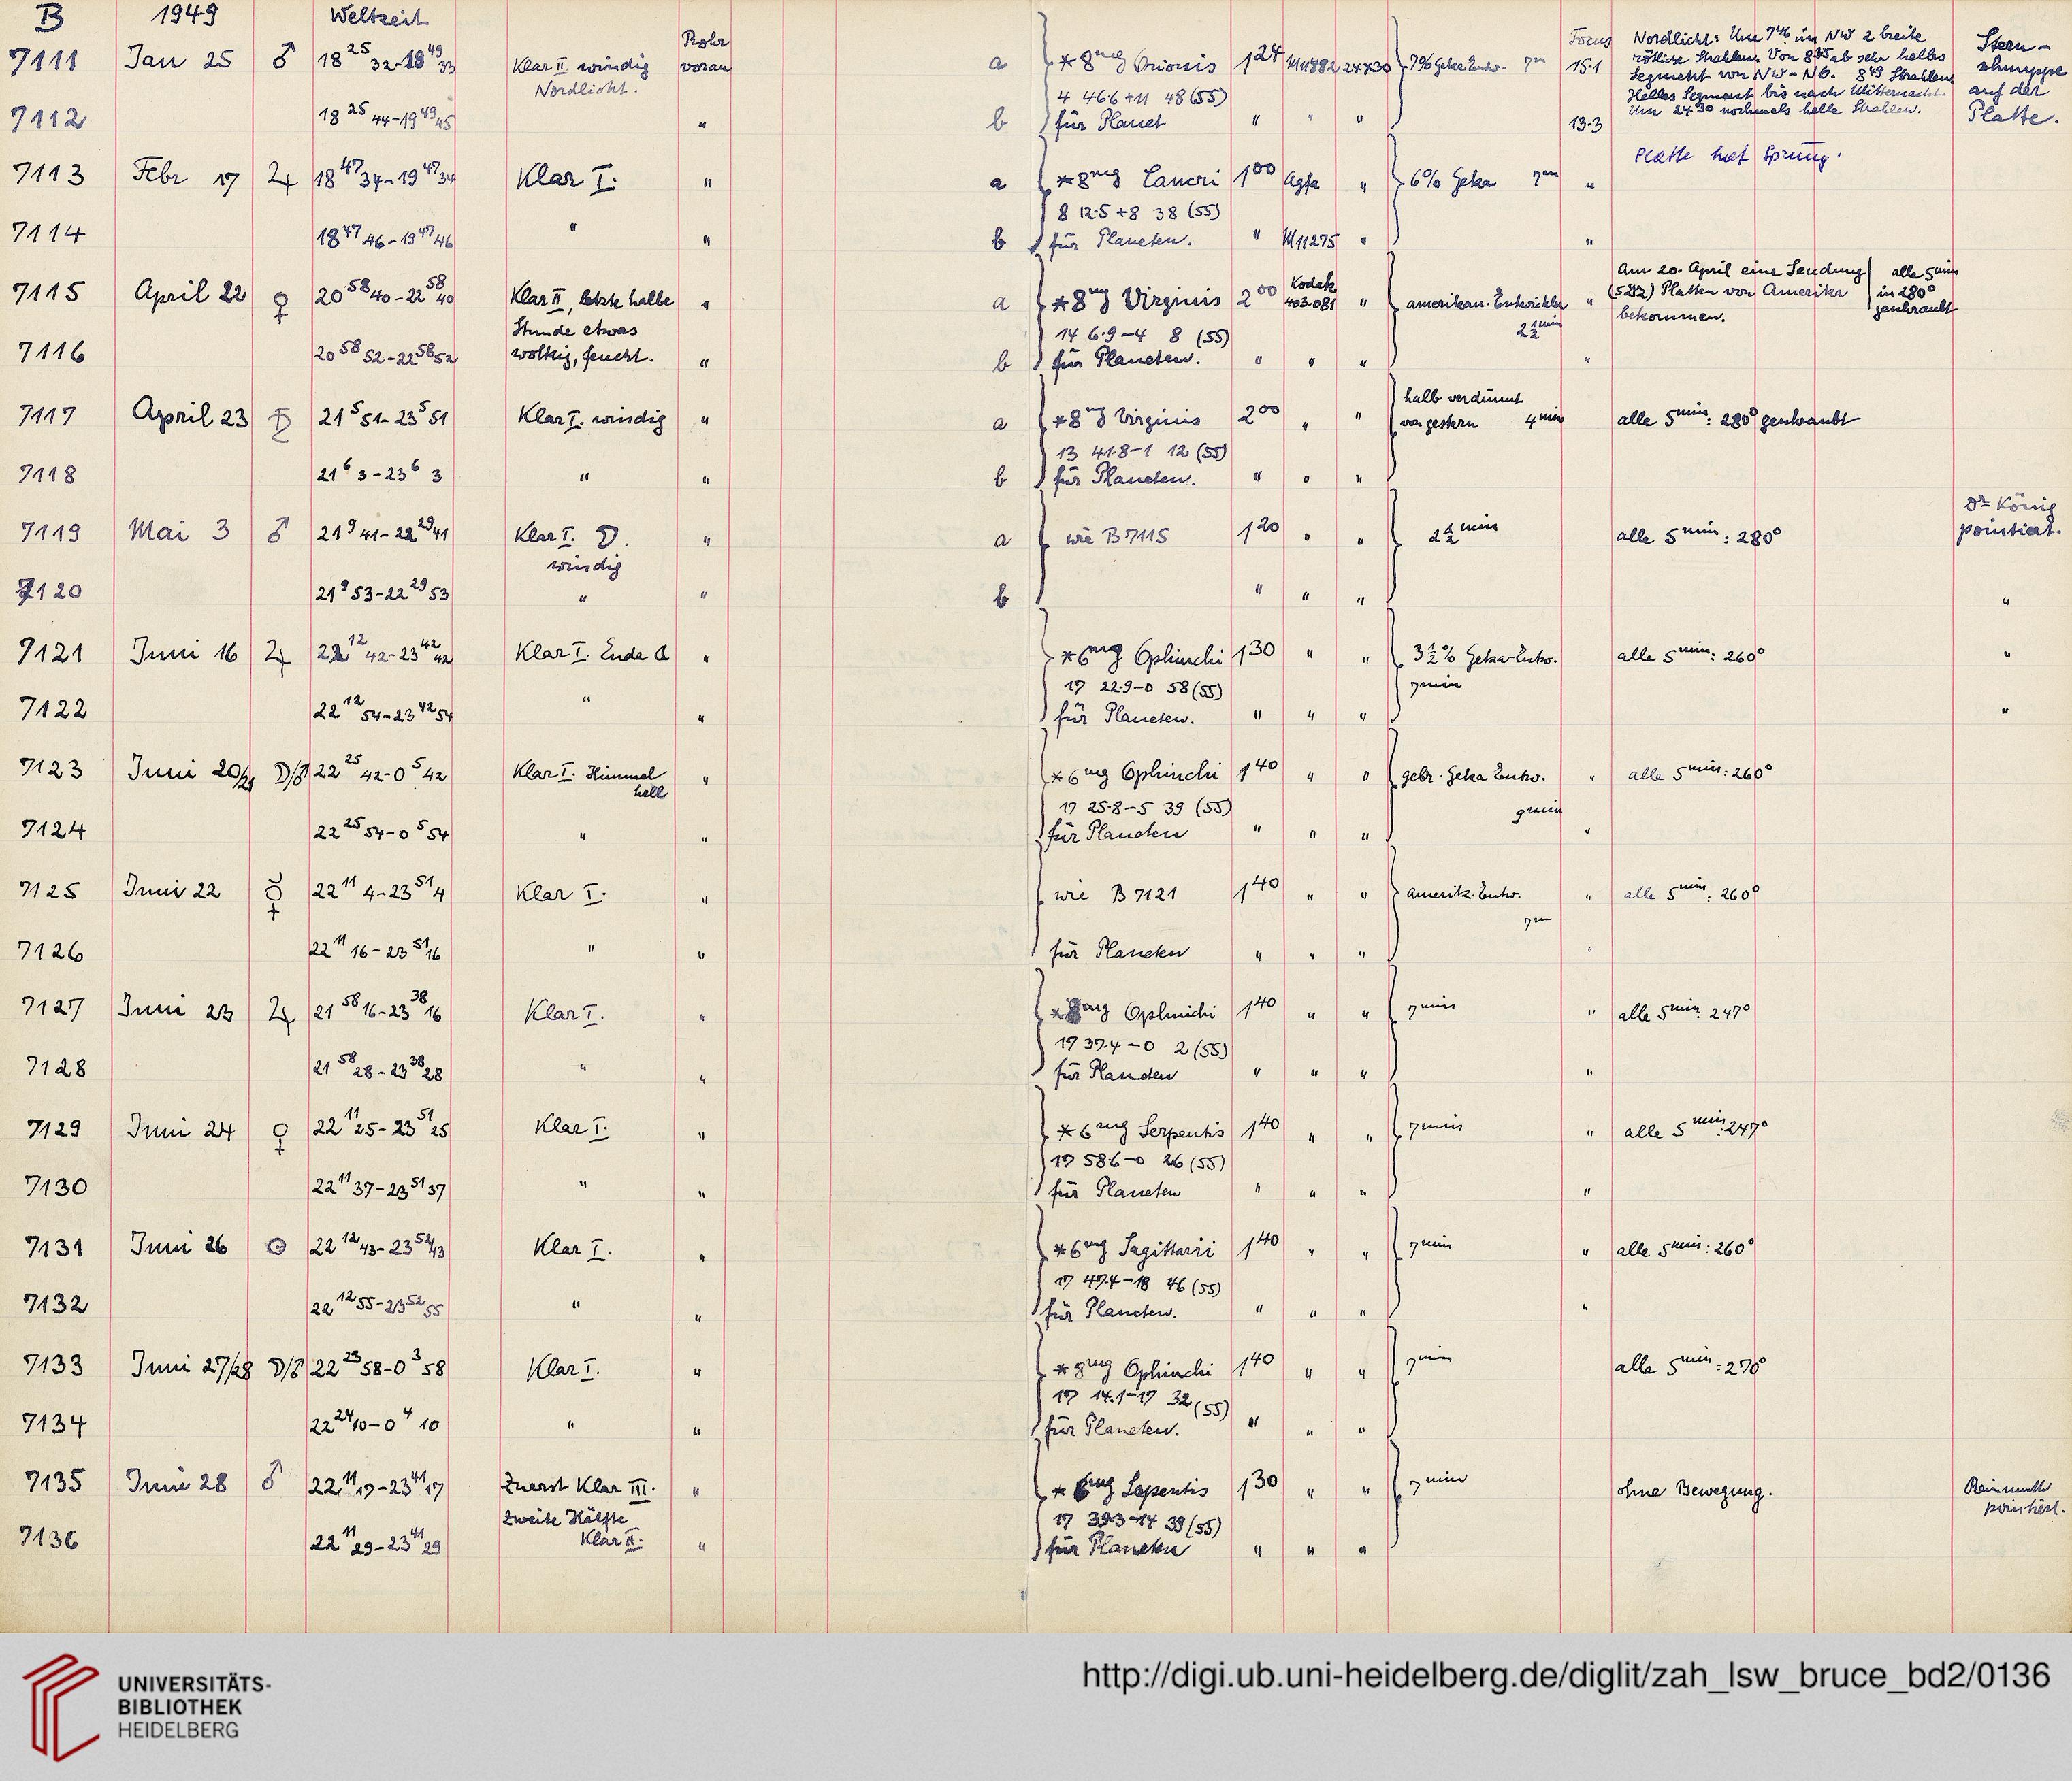 B 1949 Weltzeit
Rohr Focus
7111 Jan 25 ♂ 18 25 32-19 49 33 Klar II windig voran a *8mg Orionis 1 24 M11882 24×30 7% Geka Entw. 7m 15.1
Nordlicht.
4 46.6 +11 48 (55)
Nordlicht: Um 7 46 im NW 2 breite
rötliche Strahlen. Von 8 35 ab sehr helles
Segment von NW-NO. 8 49 Strahlen
Helles Segment bis nach Mitternacht
Um 24 30 nochmals helle Strahlen.
Stern-
schnuppe
auf der
Platte.
7112 18 25 44-19 49 45 " b für Planet " " " 13.3
Platte hat Sprung.
7113 Febr 17 ♃ 18 47 34-19 47 34 Klar I. " a *8mg Cancri 1 00 Agfa " 6% Geka 7m "
8 12.5 +8 38 (55)
7114 18 47 46-19 47 46 " " b für Planeten. " M11275 " "
7115 April 22 ♀ 20 58 40-22 58 40 Klar II, letzte halbe " a *8mg Virginis 2 00 Kodak 403-081 " amerikan. Entwickler "
Stunde etwas 14 6.9-4 8 (55) 2 1/2 min
Am 20. April eine Sendung
Platten von Amerika
bekommen.
alle 5 min
in 280°
geschraubt
7116 20 58 52-22 58 52 wolkig, feucht. " b für Planeten. " " " "
halb verdünnt
7117 April 23 ♄ 21 5 51-23 5 51 Klar I. windig " a *8mg Virginis 2 00 " " von gestern 4 min alle 5 min: 280° geschraubt
13 41.8-1 12 (55)
7118 21 6 3-23 6 3 " " b für Planeten. " " "
7119 Mai 3 ♂ 21 9 41-22 29 41 Klar I. ☽. " a wie B 7115 1 20 " " 2 1/2 min alle 5 min: 280° Dr König
windig pointiert.
7120 21 9 53-22 29 53 " " b " " " "
7121 Juni 16 ♃ 22 12 42-23 42 42 Klar I. Ende ☾ " *6mg Ophiuchi 1 30 " " 3 1/2 % Geka-Entw. alle 5 min: 260° "
17 22.9-0 58 (55) 7 min
7122 22 12 54-23 42 54 " " für Planeten. " " " "
7123 Juni 20/21 ☽/♂ 22 25 42-0 5 42 Klar I. Himmel " *6mg Ophiuchi 1 40 " " gebr. Geka Entw. " alle 5 min: 260°
hell 17 25.8-5 39 (55) 9 min
7124 22 25 54-0 5 54 " " für Planeten " " " "
7125 Juni 22 ☿ 22 11 4-23 51 4 Klar I. " wie B 7121 1 40 " " amerik. Entw. " alle 5 min: 260°
7m
7126 22 11 16-23 51 16 " " für Planeten " " " "
7127 Juni 23 ♃ 21 58 16-23 38 16 Klar I. " *8mg Ophiuchi 1 40 " " 7 min " alle 5 min: 247°
17 37.4-0 2 (55)
7128 21 58 28-23 38 28 " " für Planeten " " " "
7129 Juni 24 ♀ 22 11 25-23 51 25 Klar I. " *6mg Serpentis 1 40 " " 7 min " alle 5 min: 247°
17 58.6-0 26 (55)
7130 22 11 37-23 51 37 " " für Planeten " " " "
7131 Juni 26 ☉ 22 12 43-23 52 43 Klar I. " *6mg Sagittarii 1 40 " " 7 min " alle 5 min: 260°
17 47.4-18 46 (55)
7132 22 12 55-23 52 55 " " für Planeten. " " " "
7133 Juni 27/28 ☽/♂ 22 23 58-0 3 58 Klar I. " *8mg Ophiuchi 1 40 " " 7 min alle 5 min: 270°
17 14.1-17 32 (55)
7134 22 24 10-0 4 10 " " für Planeten. " " "
7135 Juni 28 ♂ 22 11 17-23 41 17 Zuerst Klar III. " *6mg Serpentis 1 30 " " 7 min ohne Bewegung. Reinmuth
zweite Hälfte 17 39.3-14 39 (55) pointiert.
7136 22 11 29-23 41 29 Klar II. " für Planeten " " "
UNIVERSITÄTS-
BIBLIOTHEK
HEIDELBERG
http://digi.ub.uni-heidelberg.de/diglit/zah_lsw_bruce_bd2/0136